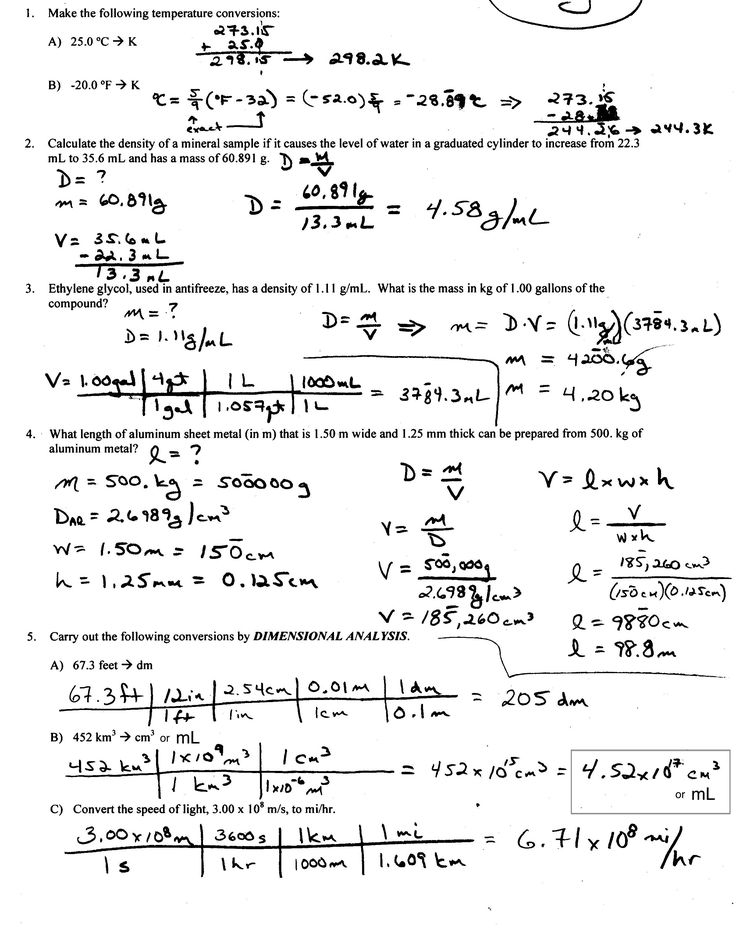 1. Make the following temperature conversions:
A) 25.0 °C → K
273.15
+ 25.0
298.15 → 298.2K
B) -20.0 °F → K
°C = 5/9 (°F - 32) = (-52.0) 5/9 = -28.89°C ⇒
exact
273.15
- 28.
244.26 → 244.3K
2. Calculate the density of a mineral sample if it causes the level of water in a graduated cylinder to increase from 22.3
mL to 35.6 mL and has a mass of 60.891 g. D = M/V
D = ?
m = 60.891g
D = 60.891g / 13.3mL = 4.58 g/mL
V = 35.6mL
- 22.3mL
13.3mL
3. Ethylene glycol, used in antifreeze, has a density of 1.11 g/mL. What is the mass in kg of 1.00 gallons of the
compound?
m = ?
D = 1.11g/mL
D = m/V ⇒ m = D·V = (1.11g/mL)(3784.3mL)
m = 4200.6g
V = 1.00gal | 4qt | 1L | 1000mL = 3784.3mL
1gal | 1.057qt | 1L
m = 4.20kg
4. What length of aluminum sheet metal (in m) that is 1.50 m wide and 1.25 mm thick can be prepared from 500. kg of
aluminum metal? l = ?
m = 500. kg = 500000g
D = m/V
V = l x w x h
DAl = 2.6989g/cm³
V = m/D
l = V / w x h
w = 1.50m = 150cm
V = 500,000g / 2.6989g/cm³
l = 185,260cm³ / (150cm)(0.125cm)
h = 1.25mm = 0.125cm
V = 185,260cm³
l = 9880cm
l = 98.8m
5. Carry out the following conversions by DIMENSIONAL ANALYSIS.
A) 67.3 feet → dm
67.3ft | 12in | 2.54cm | 0.01m | 1dm = 205 dm
1ft | 1in | 1cm | 0.1m
B) 452 km³ → cm³ or mL
452 km³ | 1x10⁹m³ | 1cm³ = 452x10¹⁵cm³ = 4.52x10¹⁷ cm³
1 km³ | 1x10⁻⁶m³
or mL
C) Convert the speed of light, 3.00 x 10⁸ m/s, to mi/hr.
3.00x10⁸m | 3600s | 1km | 1mi = 6.71x10⁸ mi/hr
1s | 1hr | 1000m | 1.609km